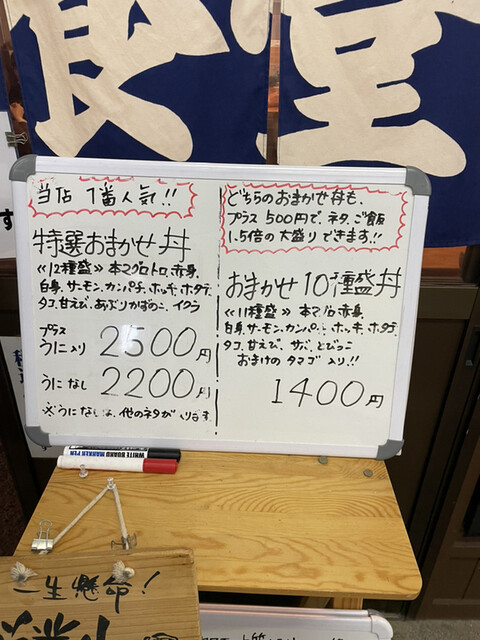 食堂
当店 1番人気!!
特選おまかせ丼
≪12種盛≫ 本マグロトロ、赤身、
白身、サーモン、カンパチ、ホッキ、ホタテ、
タコ、甘えび、あぶりかずのこ、イクラ
プラス
うに入り 2500円
うになし 2200円
※うになしは、他のネタが入ります
どちらのおまかせ丼も、
プラス500円で、ネタ、ご飯
1.5倍の大盛りできます!!
おまかせ10種盛丼
≪11種盛≫ 本マグロ赤身、
白身、サーモン、カンパチ、ホッキ、ホタテ、
タコ、甘えび、サバ、とびっこ
おまけのタマゴ入り!!
1400円
WHITE BOARD MARKER PEN
一生懸命!